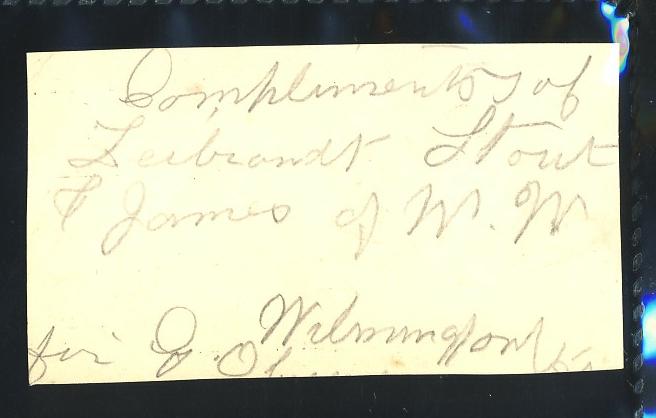 Compliments of
Leibrandt Stout
& James of W. W
Wilmington
for G.